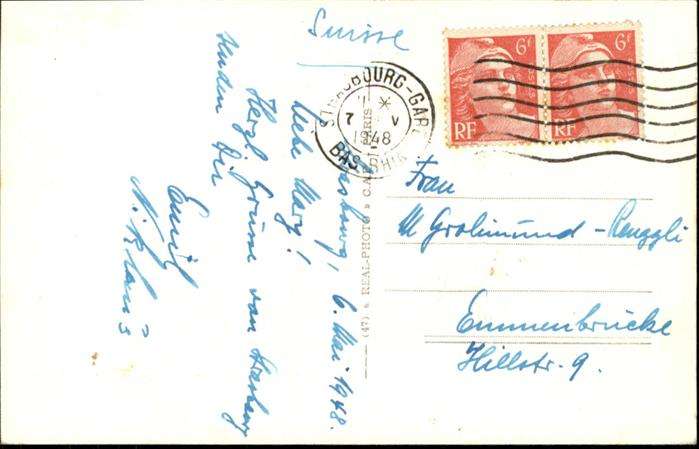 Suisse
Strasbourg, 6. Mai 1948.
Liebe Mary!
Herzl. Grüsse von Strasbourg
senden Dir
Emil
Frau
M Grolimund - Renggli
Emmenbrücke
Hillstr. 9.
6F
6F
RF
RF
STRASBOURG-GARE
7 V
1948
BAS-RHIN
(47) REAL-PHOTO C.A.P. PARIS